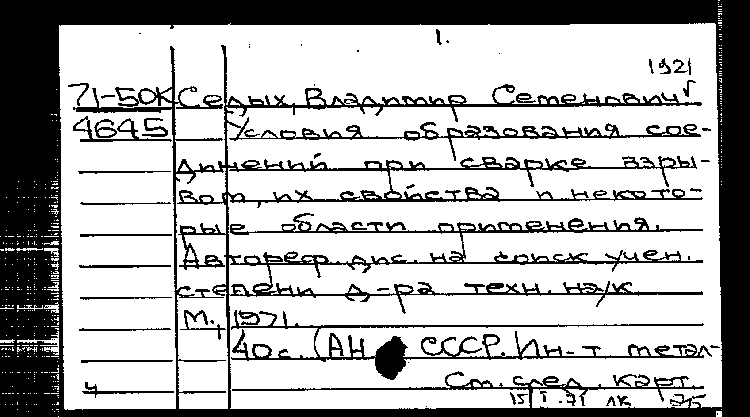 1.
1921
71-50К Седых, Владимир Семенович
4645 Условия образования сое-
динений при сварке взры-
вом, их свойства и некото-
рые области применения.
Автореф. дис. на соиск. учен.
степени д-ра техн. наук.
М., 1971.
40 с. (АН СССР. Ин-т метал-
См. след. карт.
4